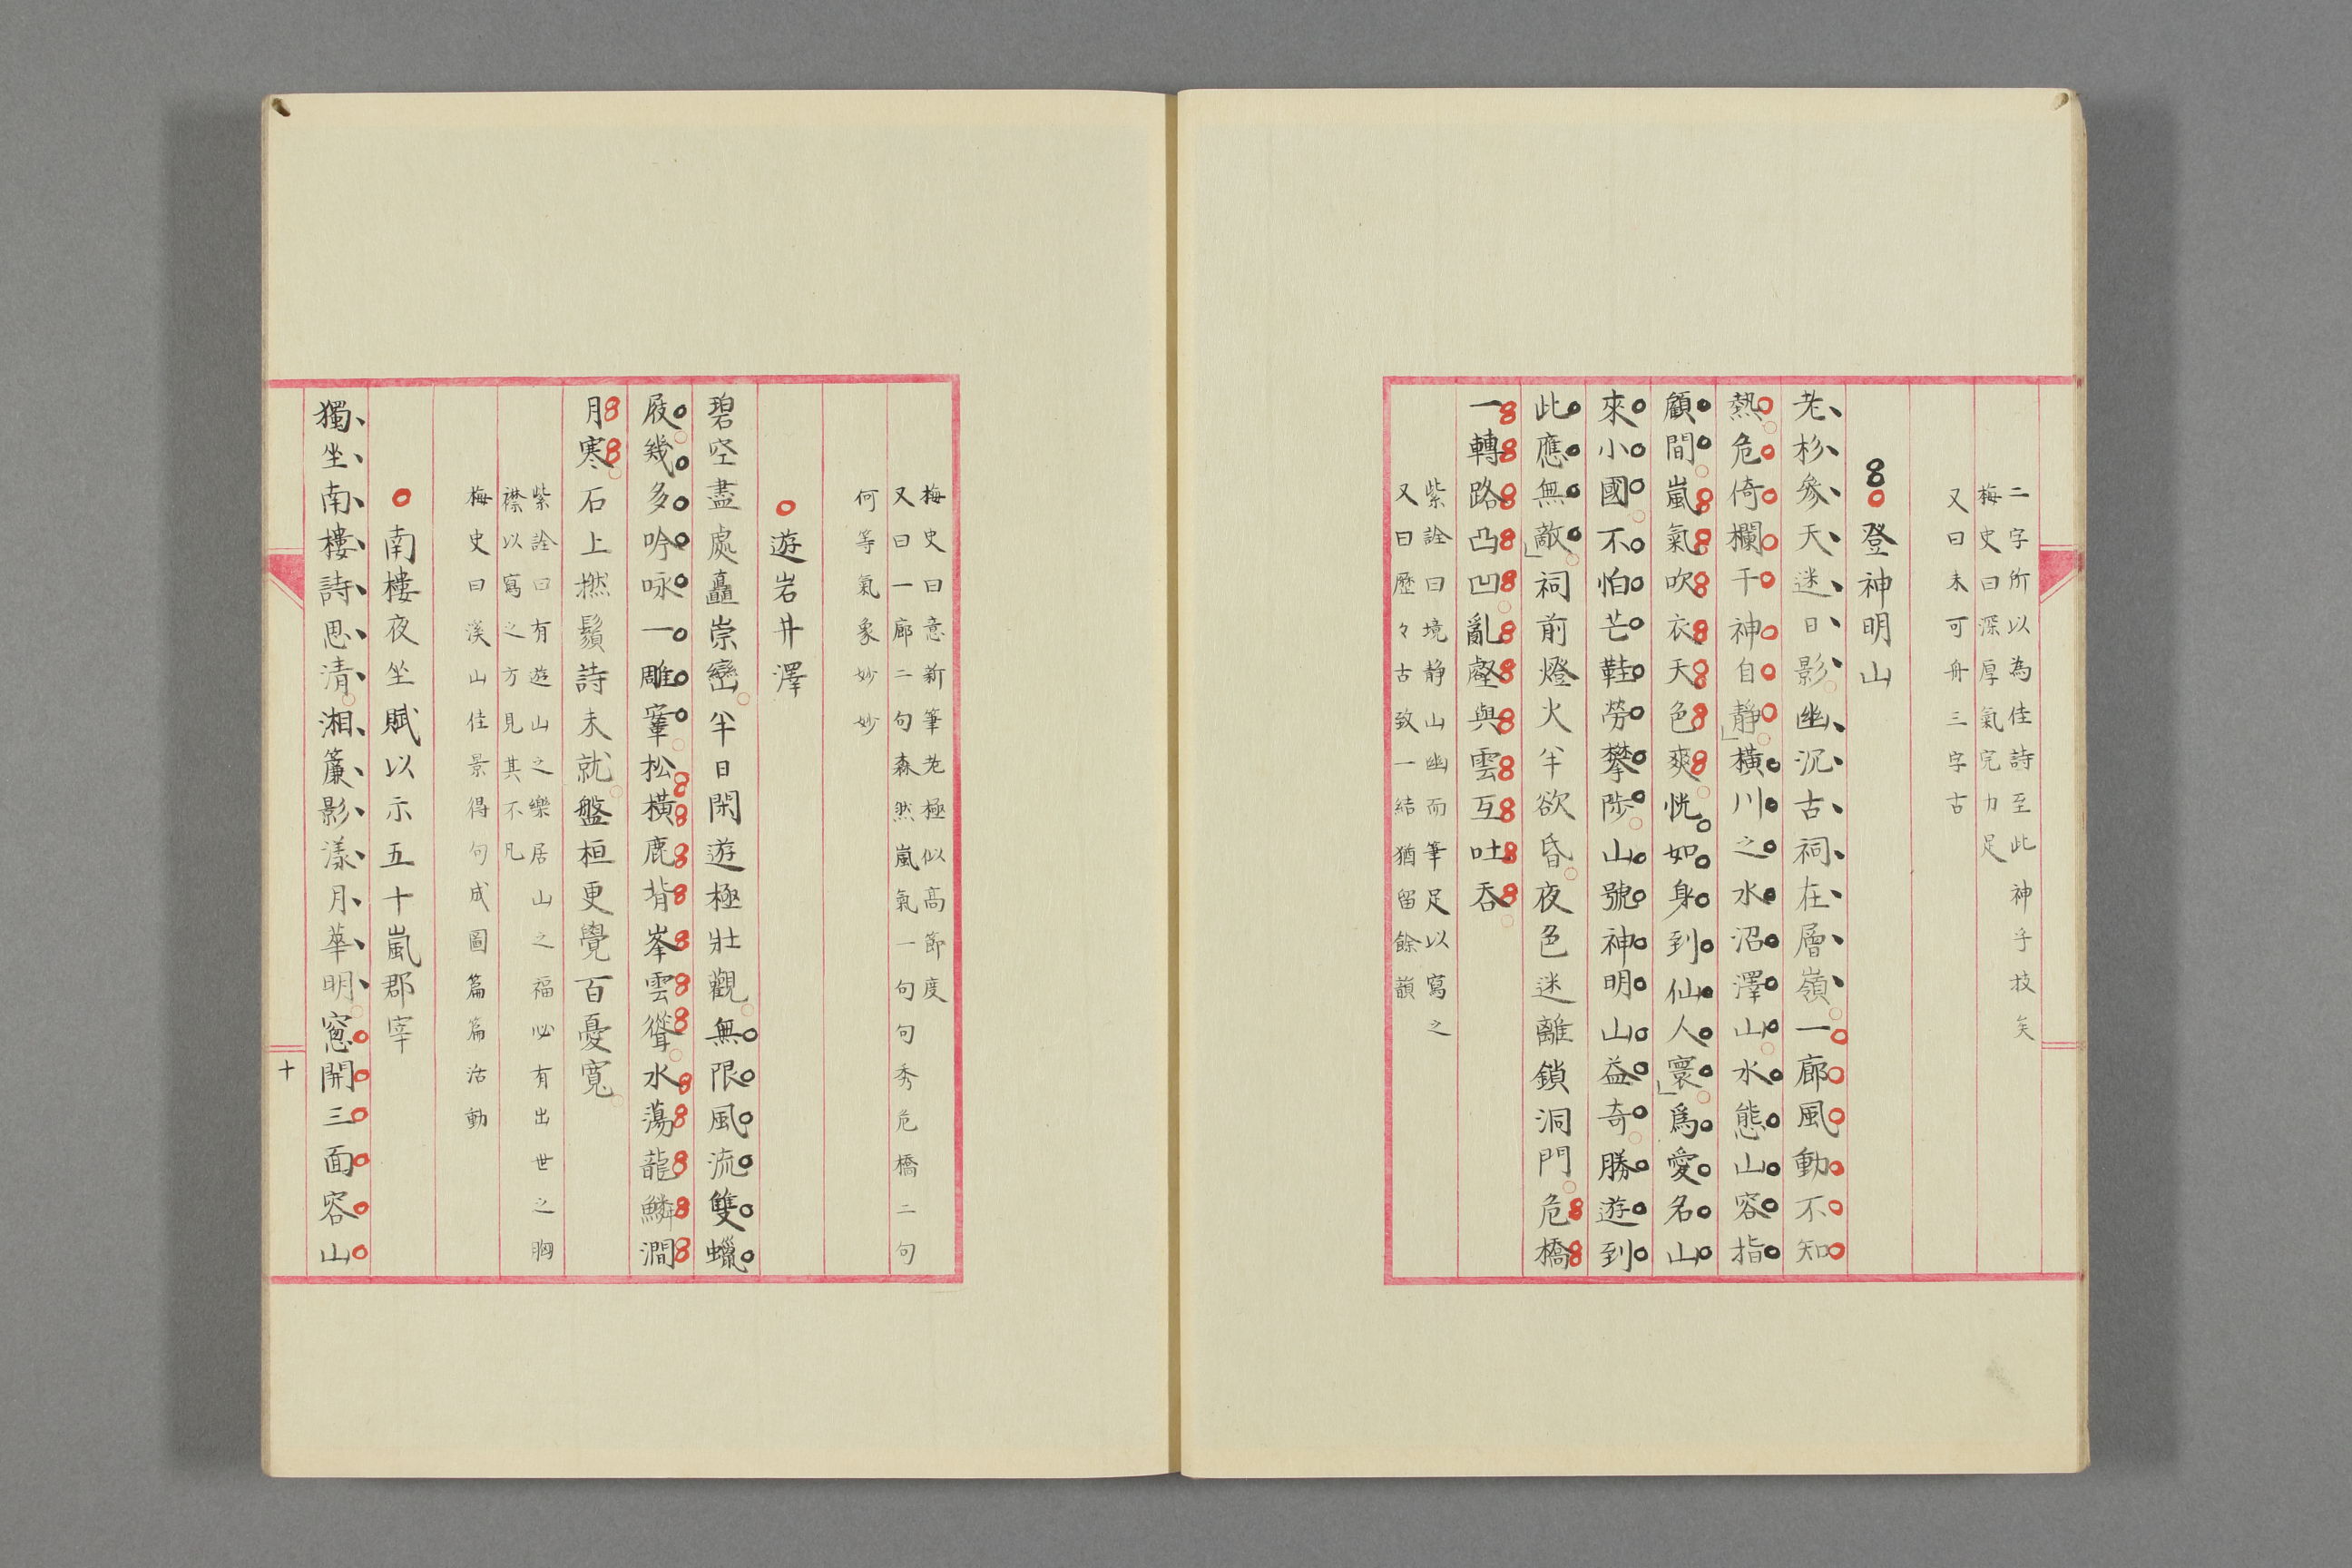 二字所以為佳詩至此神乎技矣
梅史曰深厚氣完力足
又曰未可舟三字古
登神明山
老杉參天迷日影幽沉古祠在層嶺一廊風動不知
熱危倚欄干神自靜横川之水沼澤山水態山容指
顧間嵐氣吹衣天色爽恍如身到仙人寰爲愛名山
來小國不怕芒鞋勞攀陟山號神明山益奇勝遊到
此應無敵祠前燈火半欲昏夜色迷離鎖洞門危橋
一轉路凸凹亂壑與雲互吐呑
紫詮曰境静山幽而筆足以寫之
又曰歷々古致一結猶留餘韻
梅史曰意新筆老極似高節度
又曰一廊二句森然嵐氣一句句秀危橋二句
何等氣象妙妙
遊岩井澤
碧空盡處矗崇巒半日閑遊極壯觀無限風流雙蠟
屐幾多吟咏一雕鞌松橫鹿背峯雲聳水蕩龍鱗澗
月寒石上撚鬚詩未就盤桓更覺百憂寬
紫詮曰有遊山之樂居山之福必有出世之胸
襟以寫之方見其不凡
梅史曰溪山佳景得句成圖篇篇活動
南樓夜坐賦以示五十嵐郡宰
獨坐南樓詩思清湘簾影漾月華明窓開三面容山
十